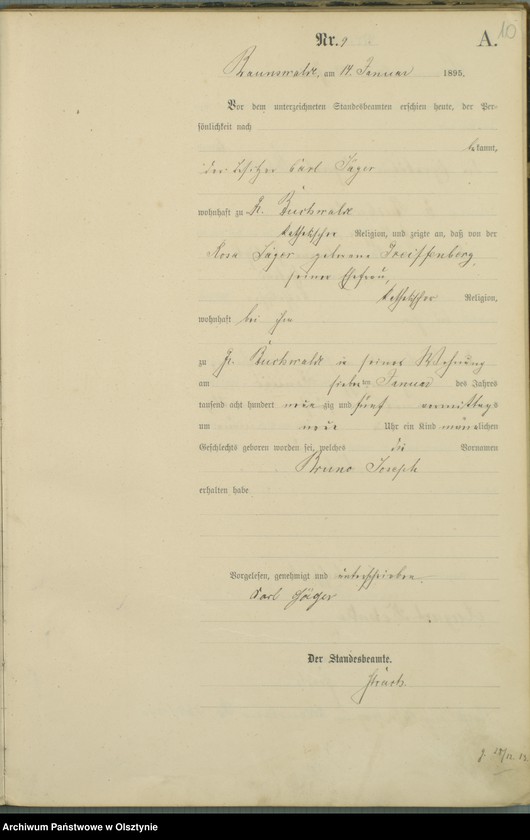 10
Nr. 9
A.
Braunswalde, am 14. Januar 1895.
Vor dem unterzeichneten Standesbeamten erschien heute, der Per-
sönlichkeit nach
bekannt,
der Besitzer Carl Jäger
wohnhaft zu Gr. Buchwalde
katholischer Religion, und zeigte an, daß von der
Rosa Jäger geborene Preissenberg,
seiner Ehefrau,
katholischer Religion,
wohnhaft bei ihm
zu Gr. Buchwalde in seiner Wohnung
am sieben ten Januar des Jahres
tausend acht hundert neunzig und fünf vormittags
um neun Uhr ein Kind männlichen
Geschlechts geboren worden sei, welches die Vornamen
Bruno Joseph
erhalten habe
Vorgelesen, genehmigt und unterschrieben.
Carl Jäger
Der Standesbeamte.
Archiwum Państwowe w Olsztynie